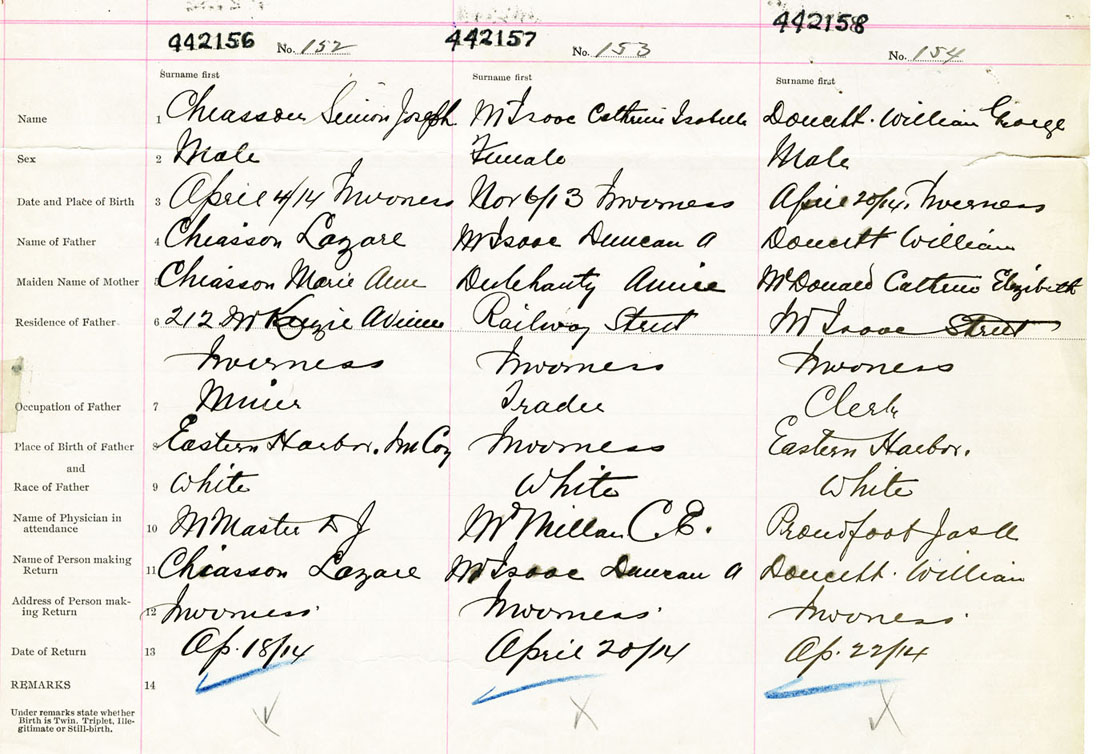 442156 No. 152 442157 No. 153 442158 No. 154
Surname first Surname first Surname first
Name 1 Chiasson Simon Joseph McIsaac Cathrine Isabelle Doucett. William George
Sex 2 Male Female Male
Date and Place of Birth 3 April 4/14 Inverness Nov 6/13 Inverness April 20/14. Inverness
Name of Father 4 Chiasson Lazare McIsaac Duncan A Doucett William
Maiden Name of Mother 5 Chiasson Marie Ann Delehanty Annie McDonald Cathrine Elizibeth
Residence of Father 6 212 McKenzie Avenue Railway Street McIsaac Street
Inverness Inverness Inverness
Occupation of Father 7 Miner Trader Clerk
Place of Birth of Father 8 Eastern Harbor. Inv Co Inverness Eastern Harbor.
and
Race of Father 9 White White White
Name of Physician in
attendance 10 McMaster A J McMillan C.E. Proudfoot
Name of Person making
Return 11 Chiasson Lazare McIsaac Duncan A Doucett. William
Address of Person mak-
ing Return 12 Inverness Inverness Inverness
Date of Return 13 Ap. 18/14 April 20/14 Ap. 22/14
REMARKS 14
Under remarks state whether
Birth is Twin, Triplet, Ille-
gitimate or Still-birth.